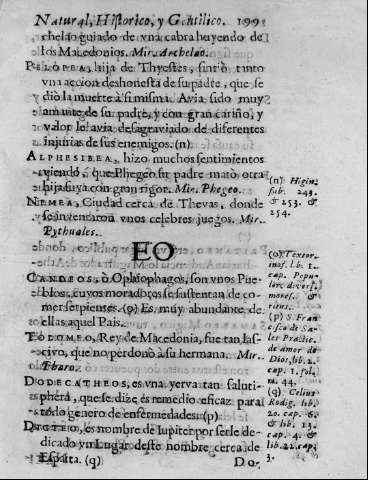 Natural, Historico, y Gentilico. 199
chelao guiado de vna cabra huyendo de
los Macedonios. Mir. Archelao.
PELOPEA, hija de Thyestes, sintiò tanto
vna accion deshonesta de su padre, que se
diò la muerte à si misma. Avia sido muy
amante de su padre, y con gran cariño, y
valor le avia desagraviado de diferentes
injurias de sus enemigos. (n)
ALPHESIBEA, hizo muchos sentimientos
viendo, que Phegeo su padre matò otra
hija suya con gran rigor. Mir. Phegeo.
NEMEA, Ciudad cerca de Thevas, donde
se inventaron vnos celebres juegos. Mir.
Pythuales.
(n) Higin.
fab. 243.
& 253. &
254.
EO
CANDEOS, ò Ophiophagos, son vnos Pue-
blos, cuyos moradores se sustentan de co-
mer serpientes. (o) Es muy abundante de
ellas aquel Pais.
TODOMEO, Rey de Macedonia, fue tan las-
civo, que no perdonò à su hermana. Mir.
Pharo.
DODECATHEOS, es vna yerva tan saluti-
phera, que se dize es remedio eficaz para
todo genero de enfermedades. (p)
DICTEO, es nombre de Iupiter por serle de-
dicado vn Lugar deste nombre cerca de
Esparta. (q)
(o) Textor.
inof. lib. 1.
cap. Popu-
lor. divers.
mores. &
ritus.
(p) S. Fran
cisco de Sa-
les Practic.
de amor de
Dios, lib. 2.
cap. 1. fol.
m. 44.
(q) Celius
Rodig. lib.
20. cap. 6.
& lib. 13.
cap. 4. &
lib. 22. cap.
3.
Do-